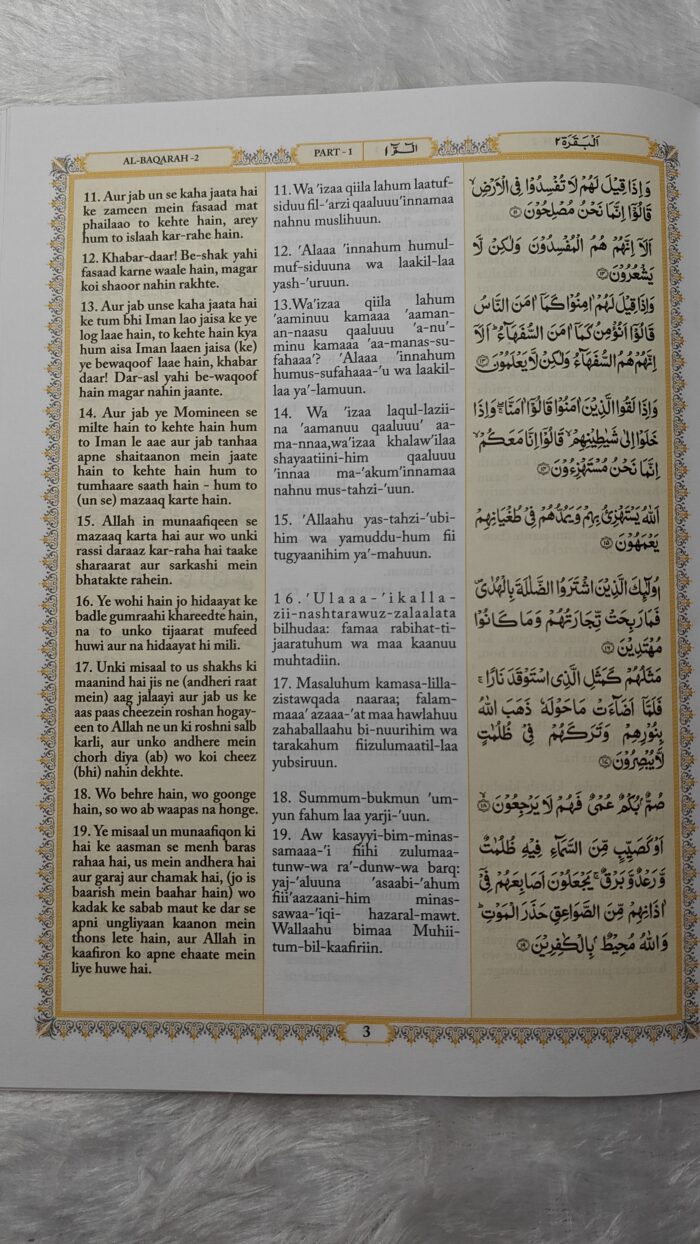 AL-BAQARAH -2
PART - 1
الٓـمّٓ ١
اَلْبَقَرَة ٢
11. Aur jab un se kaha jaata hai
ke zameen mein fasaad mat
phailao to kehte hain, arey
hum to islaah kar-rahe hain.
12. Khabar-daar! Be-shak yahi
fasaad karne waale hain, magar
koi shaoor nahin rakhte.
13. Aur jab unse kaha jaata hai
ke tum bhi Iman lao jaisa ke ye
log laae hain, to kehte hain kya
hum aisa Iman laaen jaisa (ke)
ye bewaqoof laae hain, khabar
daar! Dar-asl yahi be-waqoof
hain magar nahin jaante.
14. Aur jab ye Momineen se
milte hain to kehte hain hum
to Iman le aae aur jab tanhaa
apne shaitaanon mein jaate
hain to kehte hain hum to
tumhaare saath hain - hum to
(un se) mazaaq karte hain.
15. Allah in munaafiqeen se
mazaaq karta hai aur wo unki
rassi daraaz kar-raha hai taake
sharaarat aur sarkashi mein
bhatakte rahein.
16. Ye wohi hain jo hidaayat ke
badle gumraahi khareedte hain,
na to unko tijaarat mufeed
huwi aur na hidaayat hi mili.
17. Unki misaal to us shakhs ki
maanind hai jis ne (andheri raat
mein) aag jalaayi aur jab us ke
aas paas cheezein roshan hogay-
een to Allah ne un ki roshni salb
karli, aur unko andhere mein
chorh diya (ab) wo koi cheez
(bhi) nahin dekhte.
18. Wo behre hain, wo goonge
hain, so wo ab waapas na honge.
19. Ye misaal un munaafiqon ki
hai ke aasman se menh baras
rahaa hai, us mein andhera hai
aur garaj aur chamak hai, (jo is
baarish mein baahar hain) wo
kadak ke sabab maut ke dar se
apni ungliyaan kaanon mein
thons lete hain, aur Allah in
kaafiron ko apne ehaate mein
liye huwe hai.
11. Wa 'izaa qiila lahum laatuf-
siduu fil-'arzi qaaluuu'innamaa
nahnu muslihuun.
12. 'Alaaa 'innahum humul-
muf-siduuna wa laakil-laa
yash-'uruun.
13.Wa'izaa qiila lahum
'aaminuu kamaaa 'aaman-
an-naasu qaaluuu 'a-nu'-
minu kamaaa 'aa-manas-su-
fahaaa'? 'Alaaa 'innahum
humus-sufahaaa-'u wa laakil-
laa ya'-lamuun.
14. Wa 'izaa laqul-lazii-
na 'aamanuu qaaluuu' aa-
ma-nnaa,wa'izaa khalaw'ilaa
shayaatiini-him qaaluuu
'innaa ma-'akum'innamaa
nahnu mus-tahzi-'uun.
15. 'Allaahu yas-tahzi-'ubi-
him wa yamuddu-hum fii
tugyaanihim ya'-mahuun.
16.'Ulaaa-'ikalla-
zii-nashtarawuz-zalaalata
bilhudaa: famaa rabihat-ti-
jaaratuhum wa maa kaanuu
muhtadiin.
17. Masaluhum kamasa-lilla-
zistawqada naaraa; falam-
maaa' azaaa-'at maa hawlahuu
zahaballaahu bi-nuurihim wa
tarakahum fiizulumaatil-laa
yubsiruun.
18. Summum-bukmun 'um-
yun fahum laa yarji-'uun.
19. Aw kasayyi-bim-minas-
samaaa-'i fiihi zulumaa-
tunw-wa ra'-dunw-wa barq:
yaj-'aluuna 'asaabi-'ahum
fiii'aazaani-him minas-
sawaa-'iqi- hazaral-mawt.
Wallaahu bimaa Muhii-
tum-bil-kaafiriin.
وَاِذَا قِيْلَ لَهُمْ لَا تُفْسِدُوْا فِى الْاَرْضِۙ
قَالُوْٓا اِنَّمَا نَحْنُ مُصْلِحُوْنَ ۝۱۱
اَلَاۤ اِنَّهُمْ هُمُ الْمُفْسِدُوْنَ وَلٰكِنْ لَّا
يَشْعُرُوْنَ ۝۱۲
وَاِذَا قِيْلَ لَهُمْ اٰمِنُوْا كَمَاۤ اٰمَنَ النَّاسُ
قَالُوْٓا اَنُؤْمِنُ كَمَاۤ اٰمَنَ السُّفَهَآءُ ؕ اَلَاۤ
اِنَّهُمْ هُمُ السُّفَهَآءُ وَلٰكِنْ لَّا يَعْلَمُوْنَ ۝۱۳
وَاِذَا لَقُوا الَّذِيْنَ اٰمَنُوْا قَالُوْٓا اٰمَنَّا ۖۚ وَاِذَا
خَلَوْا اِلٰى شَيٰطِيْنِهِمْ ۙ قَالُوْٓا اِنَّا مَعَكُمْ ۙ
اِنَّمَا نَحْنُ مُسْتَهْزِءُوْنَ ۝۱۴
اَللّٰهُ يَسْتَهْزِئُ بِهِمْ وَيَمُدُّهُمْ فِىْ طُغْيَانِهِمْ
يَعْمَهُوْنَ ۝۱۵
اُولٰٓئِكَ الَّذِيْنَ اشْتَرَوُا الضَّلٰلَةَ بِالْهُدٰى ۪
فَمَا رَبِحَتْ تِّجَارَتُهُمْ وَمَا كَانُوْا
مُهْتَدِيْنَ ۝۱۶
مَثَلُهُمْ كَمَثَلِ الَّذِى اسْتَوْقَدَ نَارًا ۚ
فَلَمَّاۤ اَضَآءَتْ مَا حَوْلَهٗ ذَهَبَ اللّٰهُ
بِنُوْرِهِمْ وَتَرَكَهُمْ فِىْ ظُلُمٰتٍ
لَّا يُبْصِرُوْنَ ۝۱۷
صُمٌّۢ بُكْمٌ عُمْىٌ فَهُمْ لَا يَرْجِعُوْنَ ۝۱۸
اَوْ كَصَيِّبٍ مِّنَ السَّمَآءِ فِيْهِ ظُلُمٰتٌ
وَّرَعْدٌ وَّبَرْقٌ ۚ يَجْعَلُوْنَ اَصَابِعَهُمْ فِىْۤ
اٰذَانِهِمْ مِّنَ الصَّوَاعِقِ حَذَرَ الْمَوْتِ ؕ
وَاللّٰهُ مُحِيْطٌۢ بِالْكٰفِرِيْنَ ۝۱۹
3